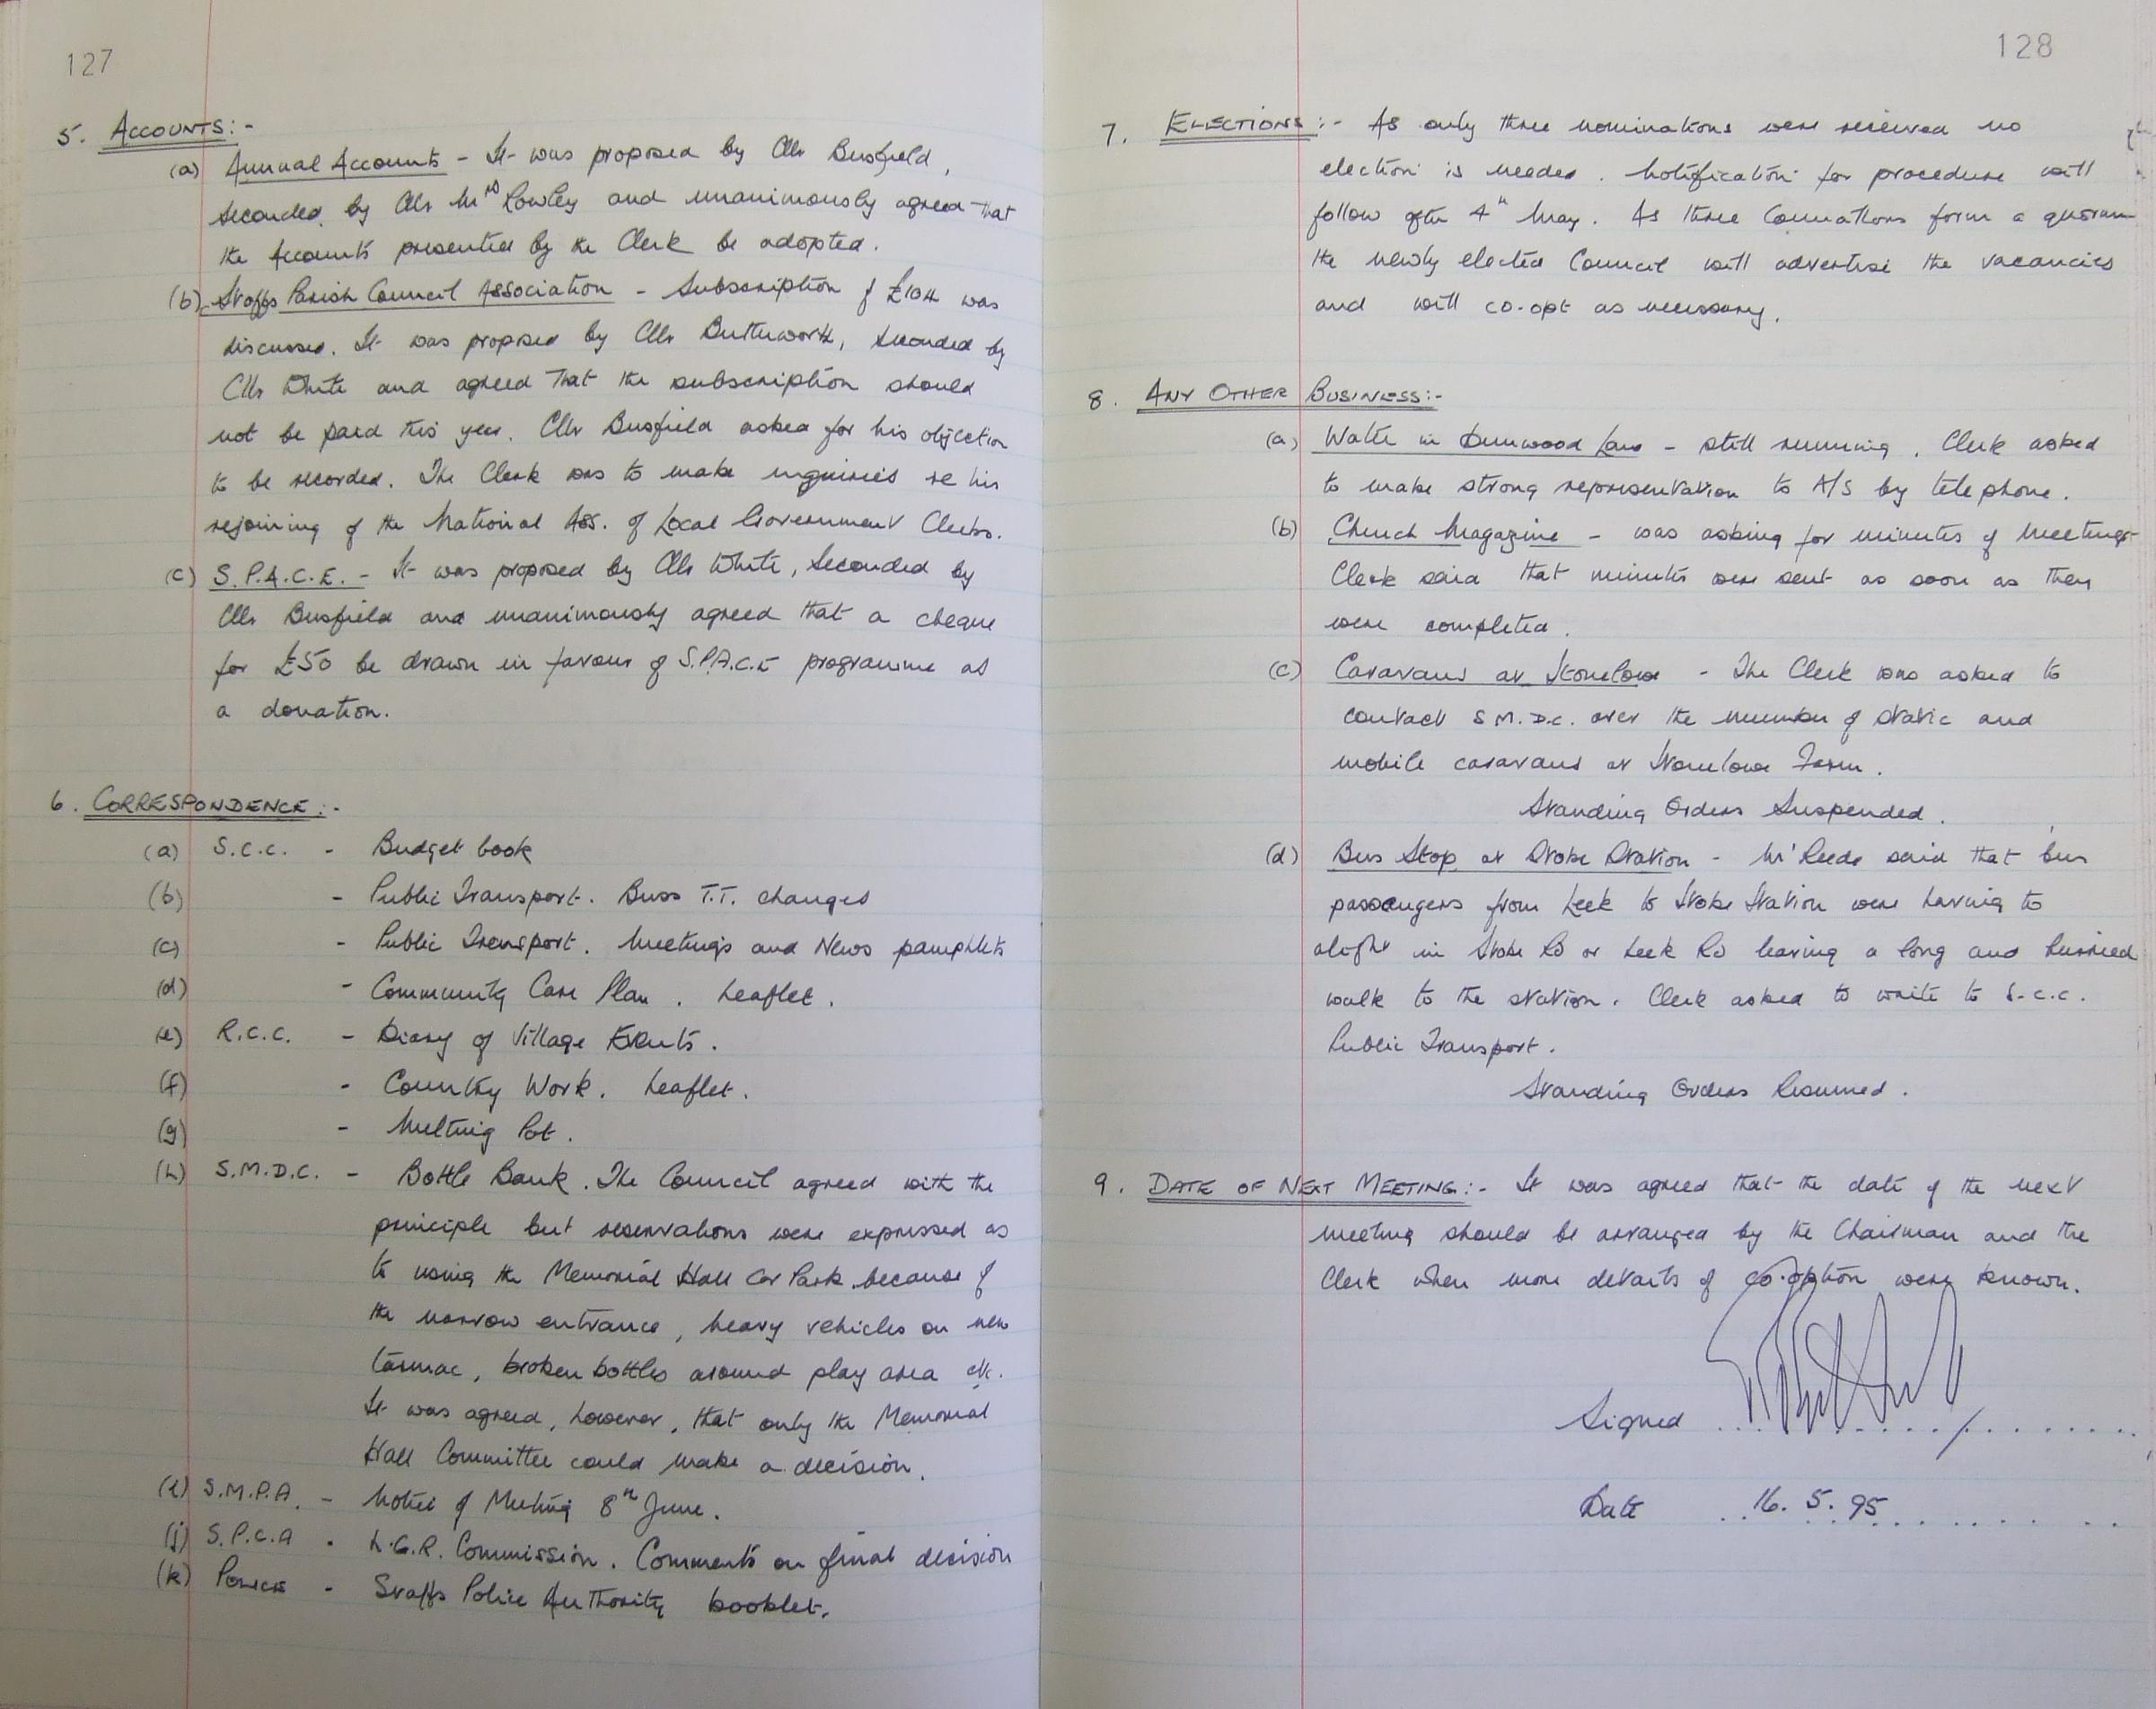 127
5. ACCOUNTS:-
(a) Annual Accounts - It was proposed by Cllr Busfield,
seconded by Cllr Mrs Rowley and unanimously agreed that
the Accounts presented by the Clerk be adopted.
(b) Staffs Parish Council Association - Subscription of £104 was
discussed. It was proposed by Cllr Butterworth, seconded by
Cllr White and agreed that the subscription should
not be paid this year. Cllr Busfield asked for his objection
to be recorded. The Clerk was to make inquiries re his
rejoining of the National Ass. of Local Government Clerks.
(c) S.P.A.C.E. - It was proposed by Cllr White, seconded by
Cllr Busfield and unanimously agreed that a cheque
for £50 be drawn in favour of S.P.A.C.E programme as
a donation.
6. CORRESPONDENCE:-
(a) S.C.C. - Budget book
(b) - Public Transport. Buss T.T. changes
(c) - Public Transport. Meetings and News pamphlets
(d) - Community Care Plan. Leaflet.
(e) R.C.C. - Diary of Village Events.
(f) - Country Work. Leaflet.
(g) - Melting Pot.
(h) S.M.D.C. - Bottle Bank. The Council agreed with the
principle but reservations were expressed as
to using the Memorial Hall Car Park because of
the narrow entrance, heavy vehicles on new
tarmac, broken bottles around play area etc.
It was agreed, however, that only the Memorial
Hall Committee could make a decision.
(i) S.M.P.A. - Notice of Meeting 8th June.
(j) S.P.C.A - L.G.R. Commission. Comments on final decision
(k) POLICE - Staffs Police Authority booklet.
128
7. ELECTIONS:- As only three nominations were received no
election is needed. Notification for procedure will
follow after 4th May. As three Councillors form a quorum
the newly elected Council will advertise the vacancies
and will co-opt as necessary.
8. ANY OTHER BUSINESS:-
(a) Water in Dunwood Lane - still running. Clerk asked
to make strong representation to A/S by telephone.
(b) Church Magazine - was asking for minutes of Meetings
Clerk said that minutes were sent as soon as they
were completed.
(c) Caravans at Stonelowe - The Clerk was asked to
contact S.M.D.C. over the number of static and
mobile caravans at Stonelowe Farm.
Standing Orders Suspended.
(d) Bus Stop at Stoke Station - Mr Reede said that bus
passengers from Leek to Stoke Station were having to
alight in Stoke Rd or Leek Rd leaving a long and hurried
walk to the station. Clerk asked to write to S.C.C.
Public Transport.
Standing Orders Resumed.
9. DATE OF NEXT MEETING:- It was agreed that the date of the next
meeting should be arranged by the Chairman and the
Clerk when more details of co-option were known.
Signed
Date 16. 5. 95